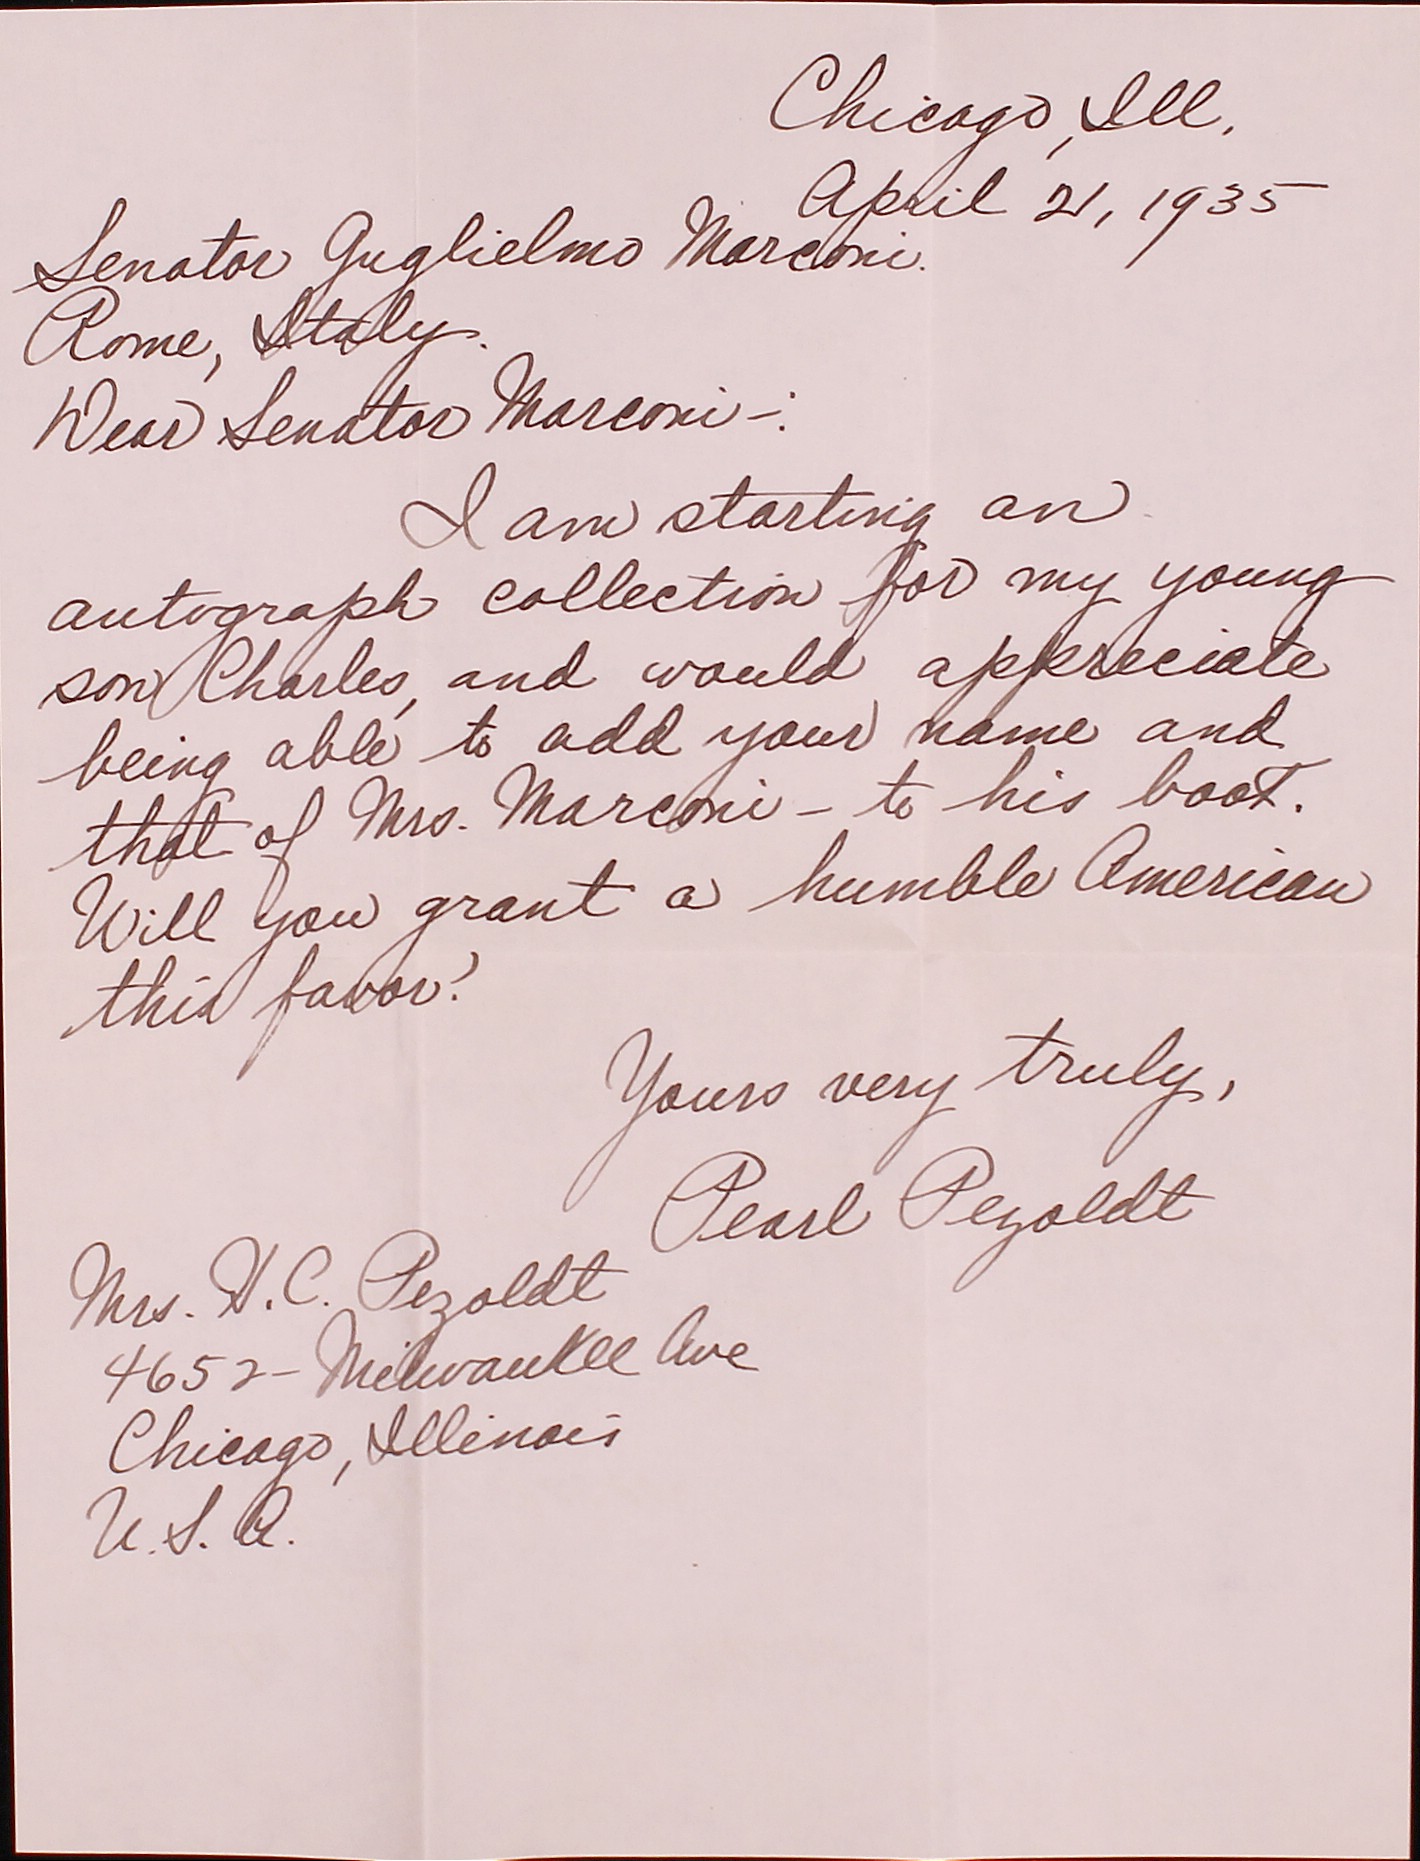 Chicago, Ill.
April 21, 1935
Senator Guglielmo Marconi.
Rome, Italy.
Dear Senator Marconi -:
I am starting an
autograph collection for my young
son Charles, and would appreciate
being able to add your name and
that of Mrs. Marconi - to his book.
Will you grant a humble American
this favor?
Yours very truly,
Pearl Pezoldt
Mrs. H. C. Pezoldt
4652 - Milwaukee Ave
Chicago, Illinois
U. S. A.